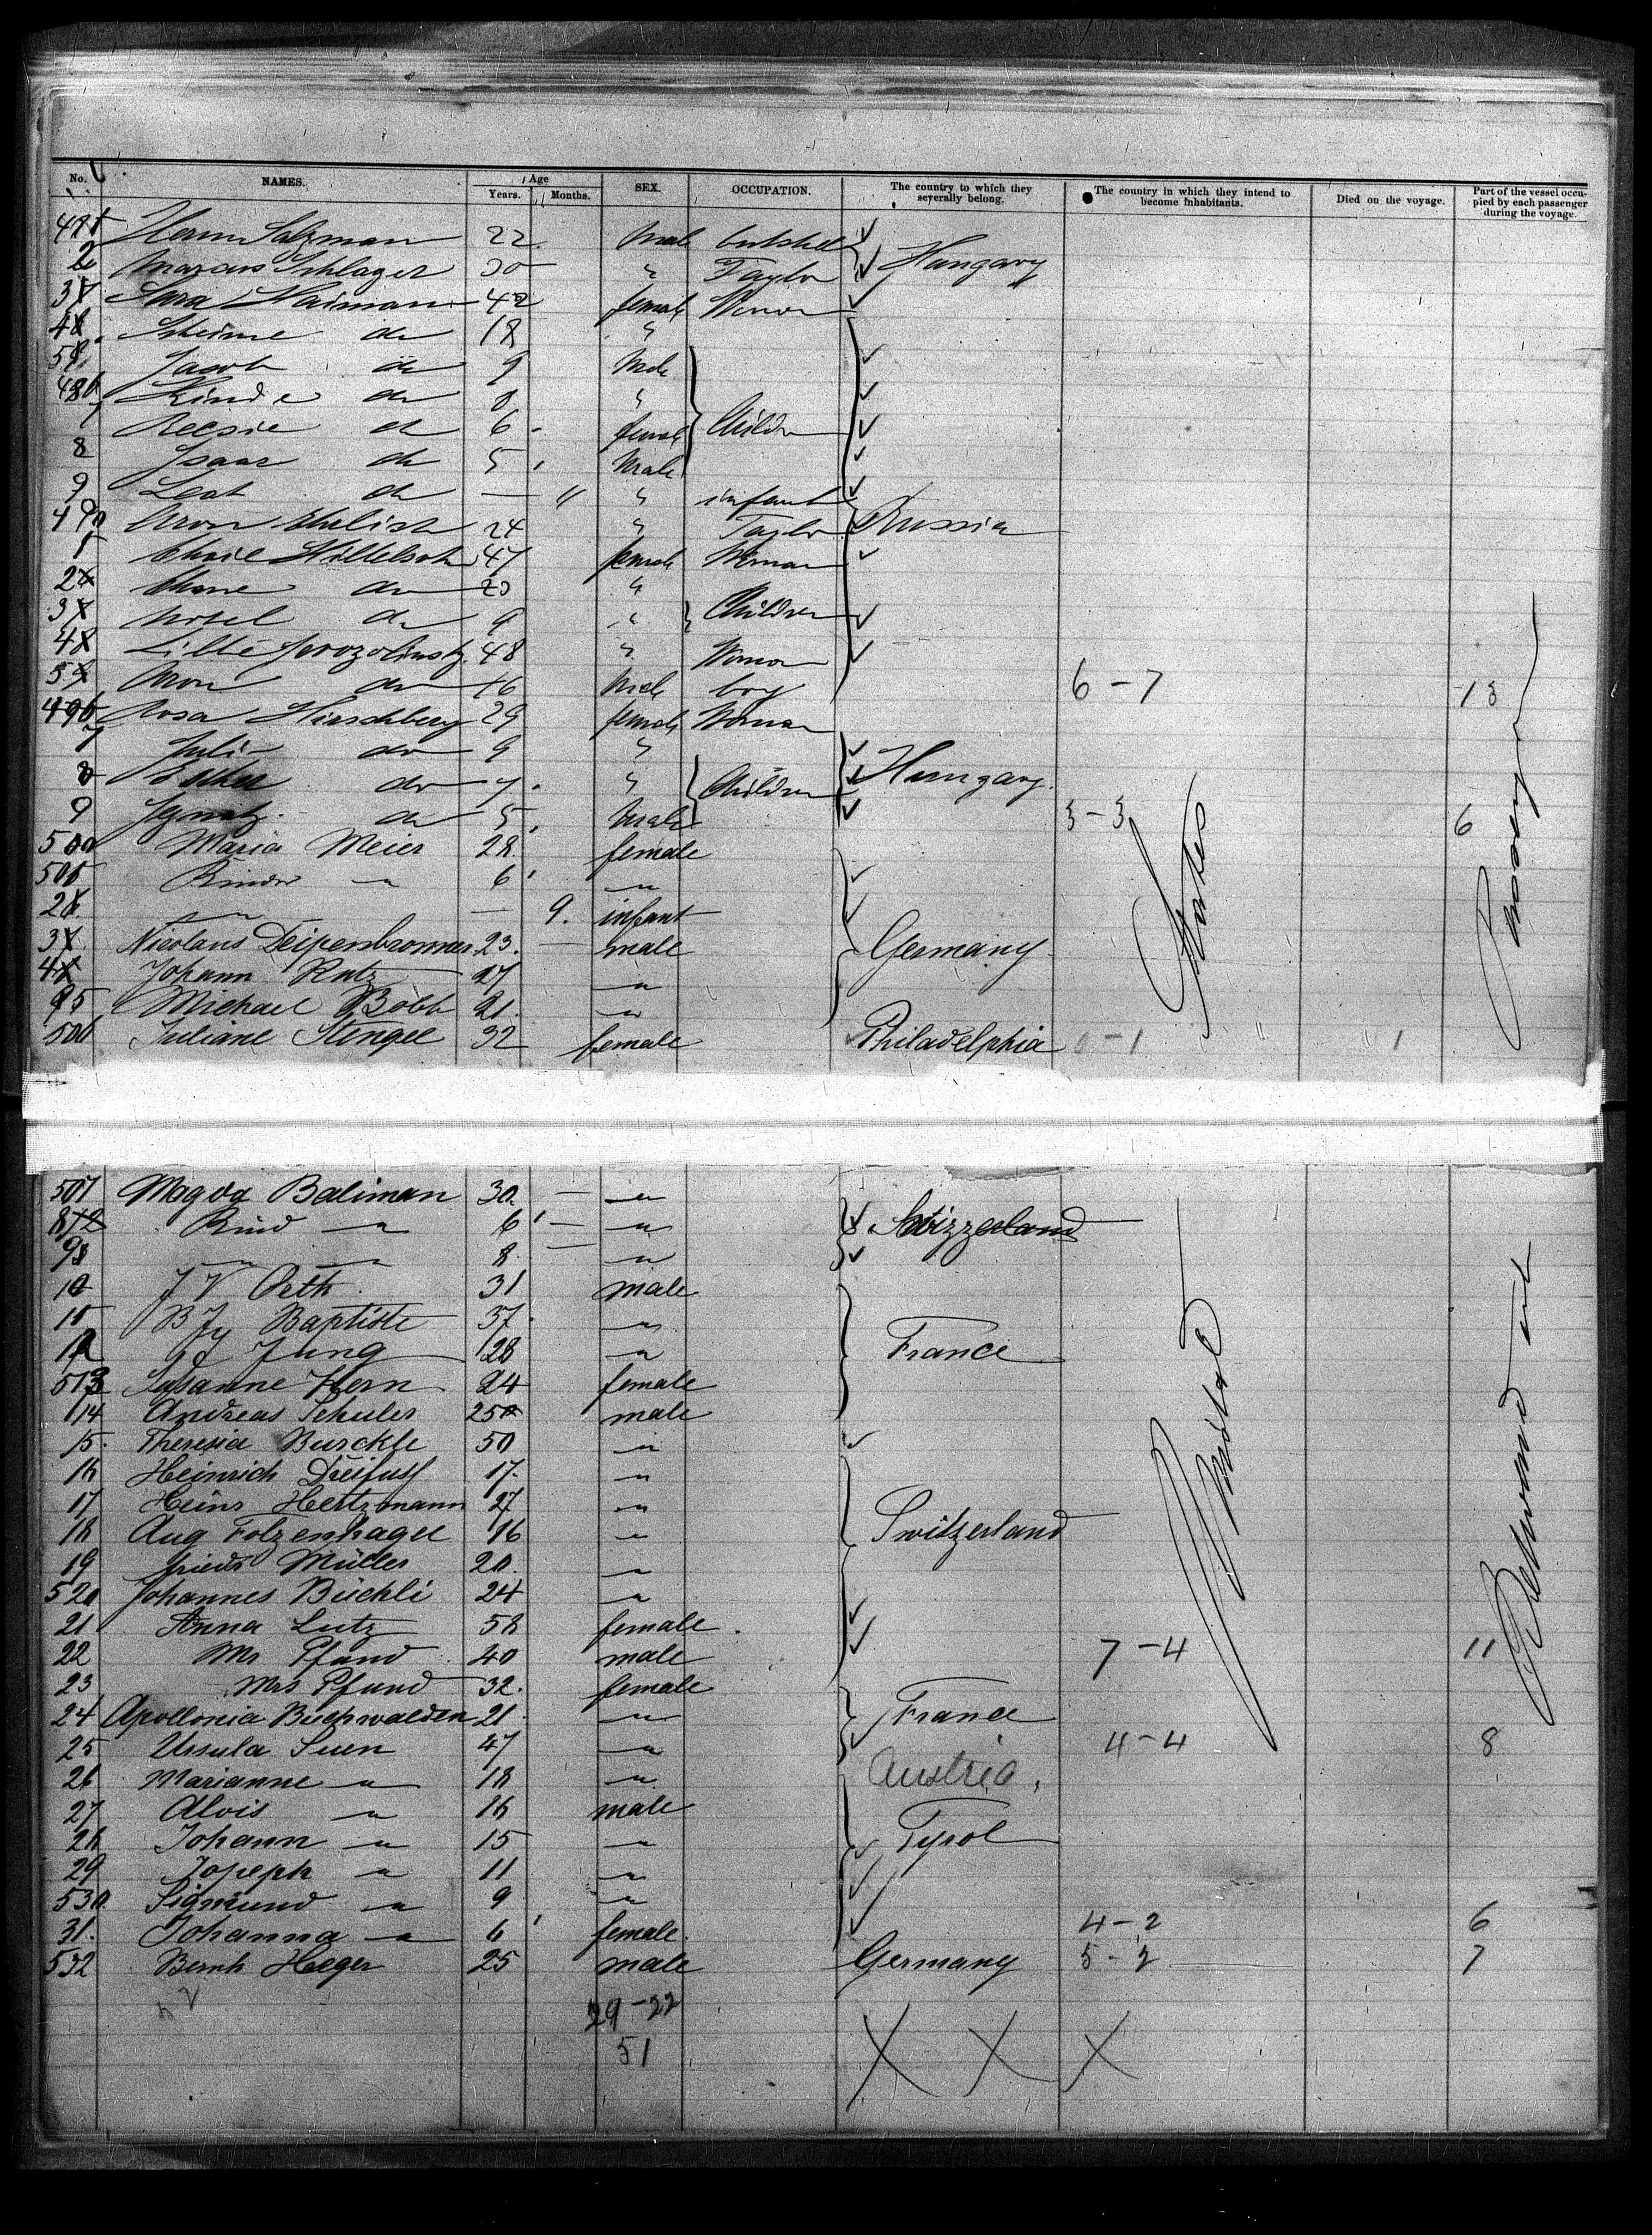 No. NAMES. Age Years. Months. SEX. OCCUPATION. The country to which they severally belong. The country in which they intend to become inhabitants. Died on the voyage. Part of the vessel occupied by each passenger during the voyage.
Herm Salzman 22 Male
2 Marcus Schlager 30 " Taylor Hungary
3 Sara Naiman 42 female Woman
4 do 18 "
5 Jacob do 9 Male
do 8 "
7 do 6 female Children
8 Isaac do 5 Male
9 Leat do — " " infant
490 Aron Ehrlich 24 " Taylor Russia
1 Hillelsohn 47 female Woman
2 do 20 "
3 do 9 " Children
4 48 " Woman
5 Aron do 16 Male boy 6-7 13
496 Rosa Hirschberg 29 female Woman
7 Juli do 9 "
8 Esther do 7 " Children Hungary
9 do 5 Male 3-3 6
500 Maria Meier 28 female
501 Kinder " 6 "
2 " — 9. infant
3 Nicolaus Deipenbronner 23. — male Germany
4 Johann Rutz 27 "
5 Michael Bobb 21. "
506 Juliane Stengel 32 female Philadelphia 0-1 " " 1
507 Magda Baliman 30 — "
8 Kind " 6 — " Switzerland
9 " " 8 — "
10 J V Orth 31 male
11 B Jy Baptiste 37 "
12 Jung 28 " France
513 Susanne Hern 24 female
14 Andreas Schuler 25 male
15. Theresia Burckle 50 "
16 Heinrich Dreifuss 17. "
17 Heins Hertzmann 27 "
18 Aug Folzenhagel 16 " Switzerland
19 Friedr Müller 20. "
520 Johannes Büchli 24 "
21 Anna Lutz 58 female
22 Mr Pfund 40 male 7-4 11
23 Mrs Pfund 32. female
24 Apollonia Buchwalden 21 " France
25 Ursula Suen 47 " 4-4 8
26 Marianne " 18 " Austria,
27 Alois " 16 male
28 Johann " 15 " Tyrol
29 Joseph " 11 "
530 Sigmund " 9 "
31. Johanna " 6 female. 4-2 6
532 Bernh Heger 25 male Germany 5-2 7
29-22
51
United
States